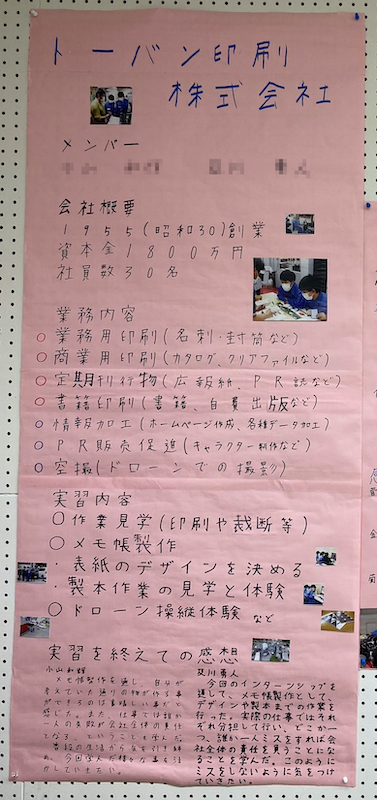 トーバン印刷
株式会社
メンバー
会社概要
1955(昭和30)創業
資本金1800万円
社員数30名
業務内容
○業務用印刷(名刺・封筒など)
○商業用印刷(カタログ、クリアファイルなど)
○定期刊行物(広報紙、PR誌など)
○書籍印刷(書籍、自費出版など)
○情報加工(ホームページ作成、各種データ加工)
○PR販売促進(キャラクター制作など)
○空撮(ドローンでの撮影)
実習内容
○作業見学(印刷や裁断等)
○メモ帳製作
・表紙のデザインを決める
・製本作業の見学と体験
○ドローン操縦体験 など
実習を終えての感想
メモ帳製作を通し、自分が
考えていた通りの物が作る事
ができるのは素晴しい事だと
感じた。また、仕事では誰か
一人の失敗が会社全体の責任
となる、ということを学んだ。
普段の生活から気を引き締
め、今回学んだ様々な事を活
かしていきたい。
及川勇人
今回のインターンシップを
通して、メモ帳製作として
デザインや製本までの作業を
行った。実際の仕事ではそれ
ぞれ分担して行い、どこか一
つ、誰か一人ミスをすれば会
社全体の責任を負うことにな
ることを学んだ。このように
ミスをしないように気をつけ
ていきたい。